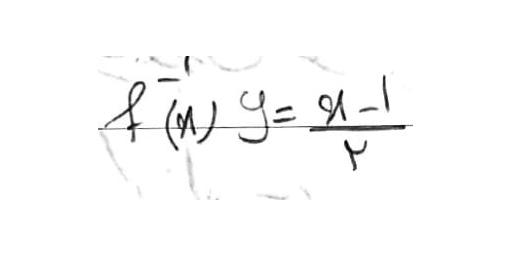 f⁻¹(x) y = (x-1)/۲